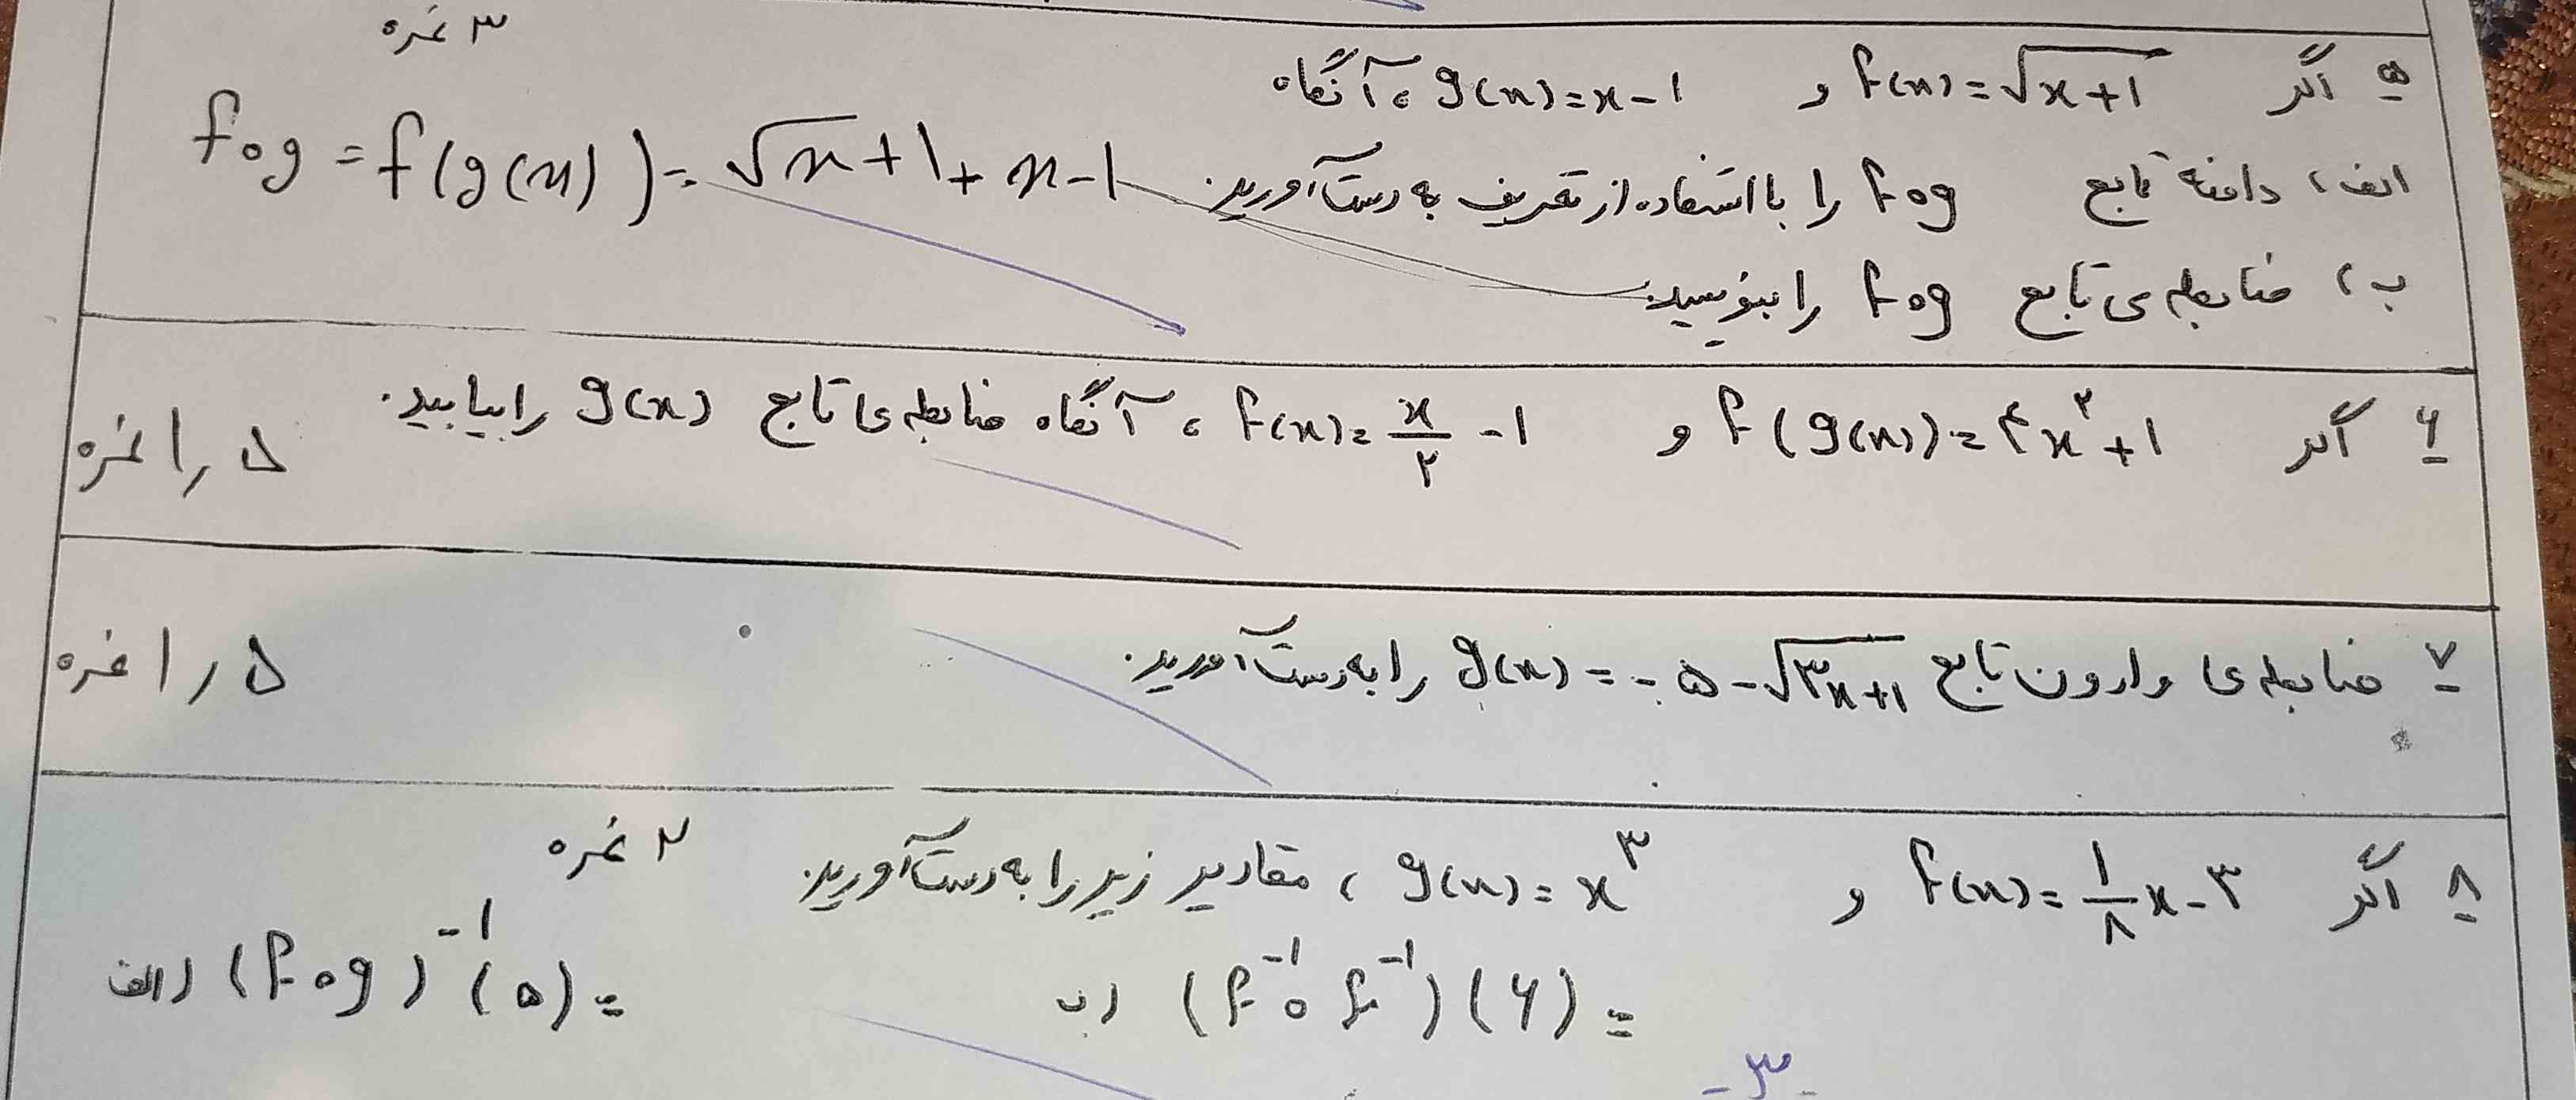 ۳ نمره
۵ اگر f(x)=√x+1 و g(x)=x-1، آنگاه
الف) دامنه تابع fog را با استفاده از تعریف به دست آورید.
fog = f(g(x)) = √x+1 + x-1
ب) ضابطه ی تابع fog را بنویسید.
۶ اگر f(g(x))=۴x²+1 و f(x)=x/۲ -1، آنگاه ضابطه ی تابع g(x) را بیابید. ۱٫۵ نمره
۷ ضابطه ی وارون تابع g(x)=-۵-√۳x+1 را به دست آورید. ۱٫۵ نمره
۸ اگر f(x)=1/۸ x-۳ و g(x)=x³، مقادیر زیر را به دست آورید. ۲ نمره
الف) (fog)⁻¹(۵)= ب) (f⁻¹of⁻¹)(۶)=
-۳-